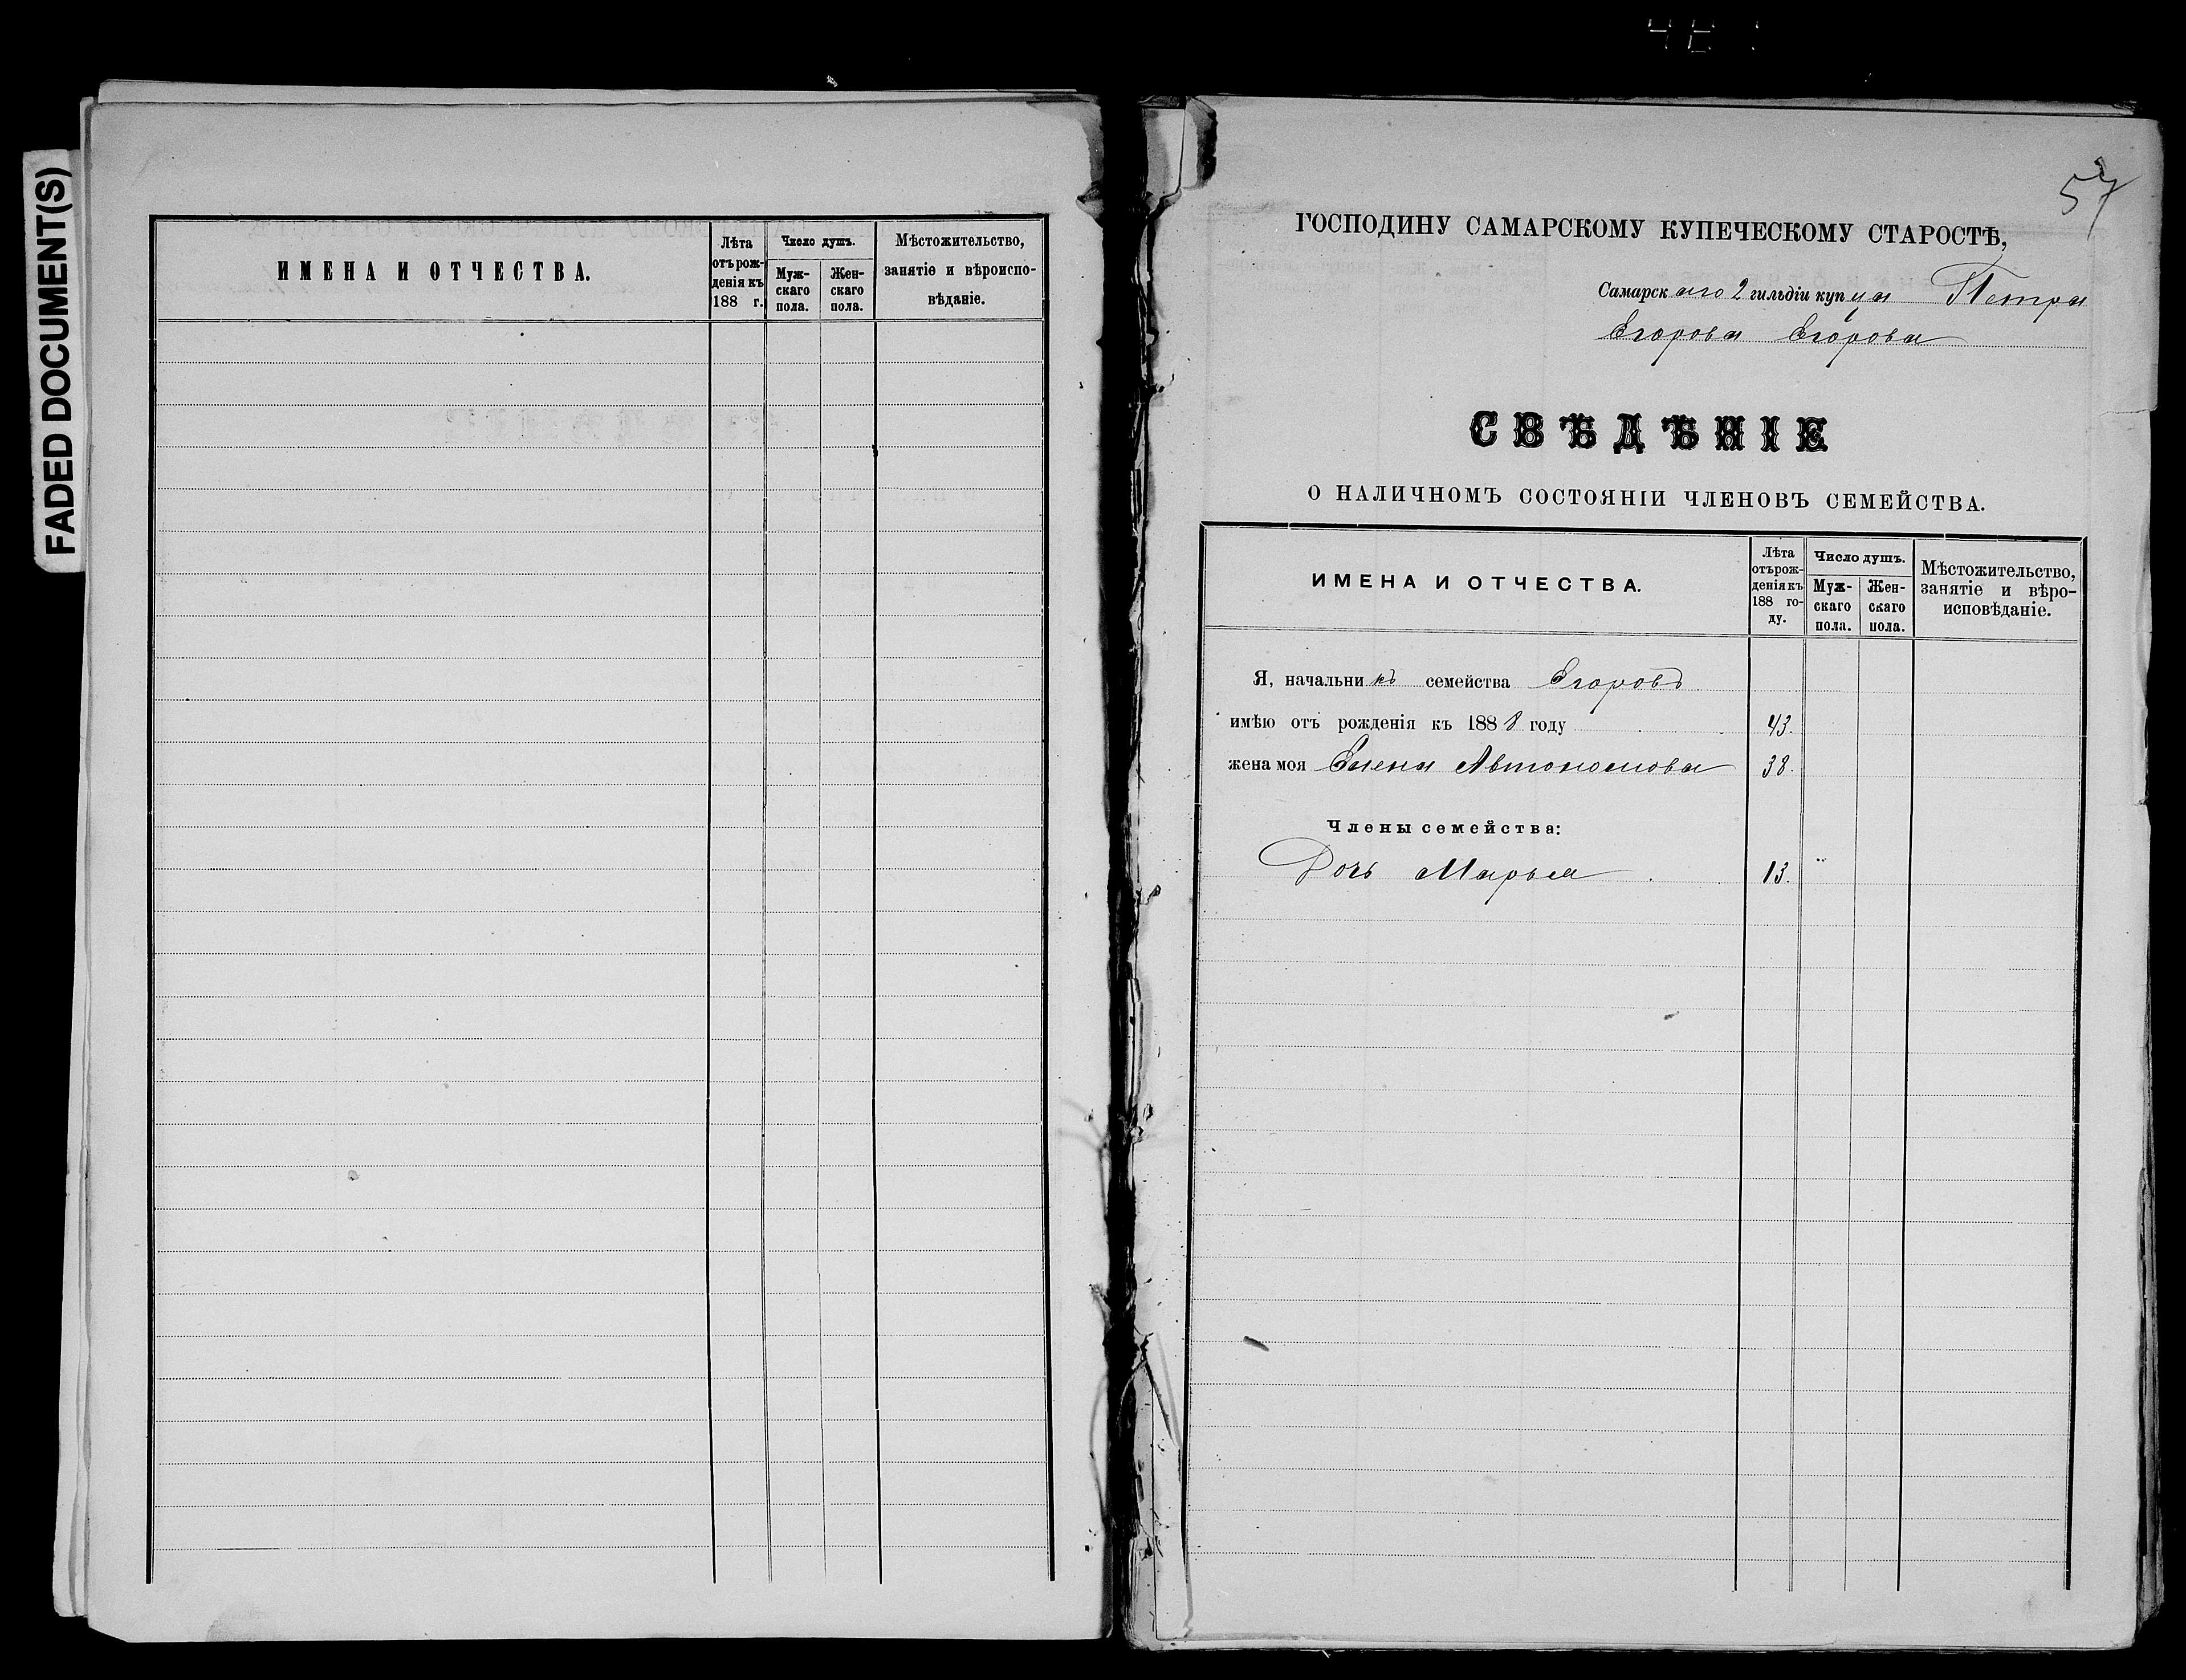 FADED DOCUMENT(S)
ИМЕНА И ОТЧЕСТВА.
Лѣта отъ рожденія къ 188 г.
Число душъ.
Мужскаго пола.
Женскаго пола.
Мѣстожительство, занятіе и вѣроисповѣданіе.
57
ГОСПОДИНУ САМАРСКОМУ КУПЕЧЕСКОМУ СТАРОСТѢ,
Самарскаго 2 гильдіи купца Петра
Егорова Егорова
СВѢДѢНІЕ
О НАЛИЧНОМЪ СОСТОЯНІИ ЧЛЕНОВЪ СЕМЕЙСТВА.
ИМЕНА И ОТЧЕСТВА.
Лѣта отъ рожденія къ 188 году.
Число душъ.
Мужскаго пола.
Женскаго пола.
Мѣстожительство, занятіе и вѣроисповѣданіе.
Я, начальникъ семейства Егоровъ
имѣю отъ рожденія къ 1888 году 43.
жена моя Елена Автономова 38.
Члены семейства:
Дочь Марья 13. "